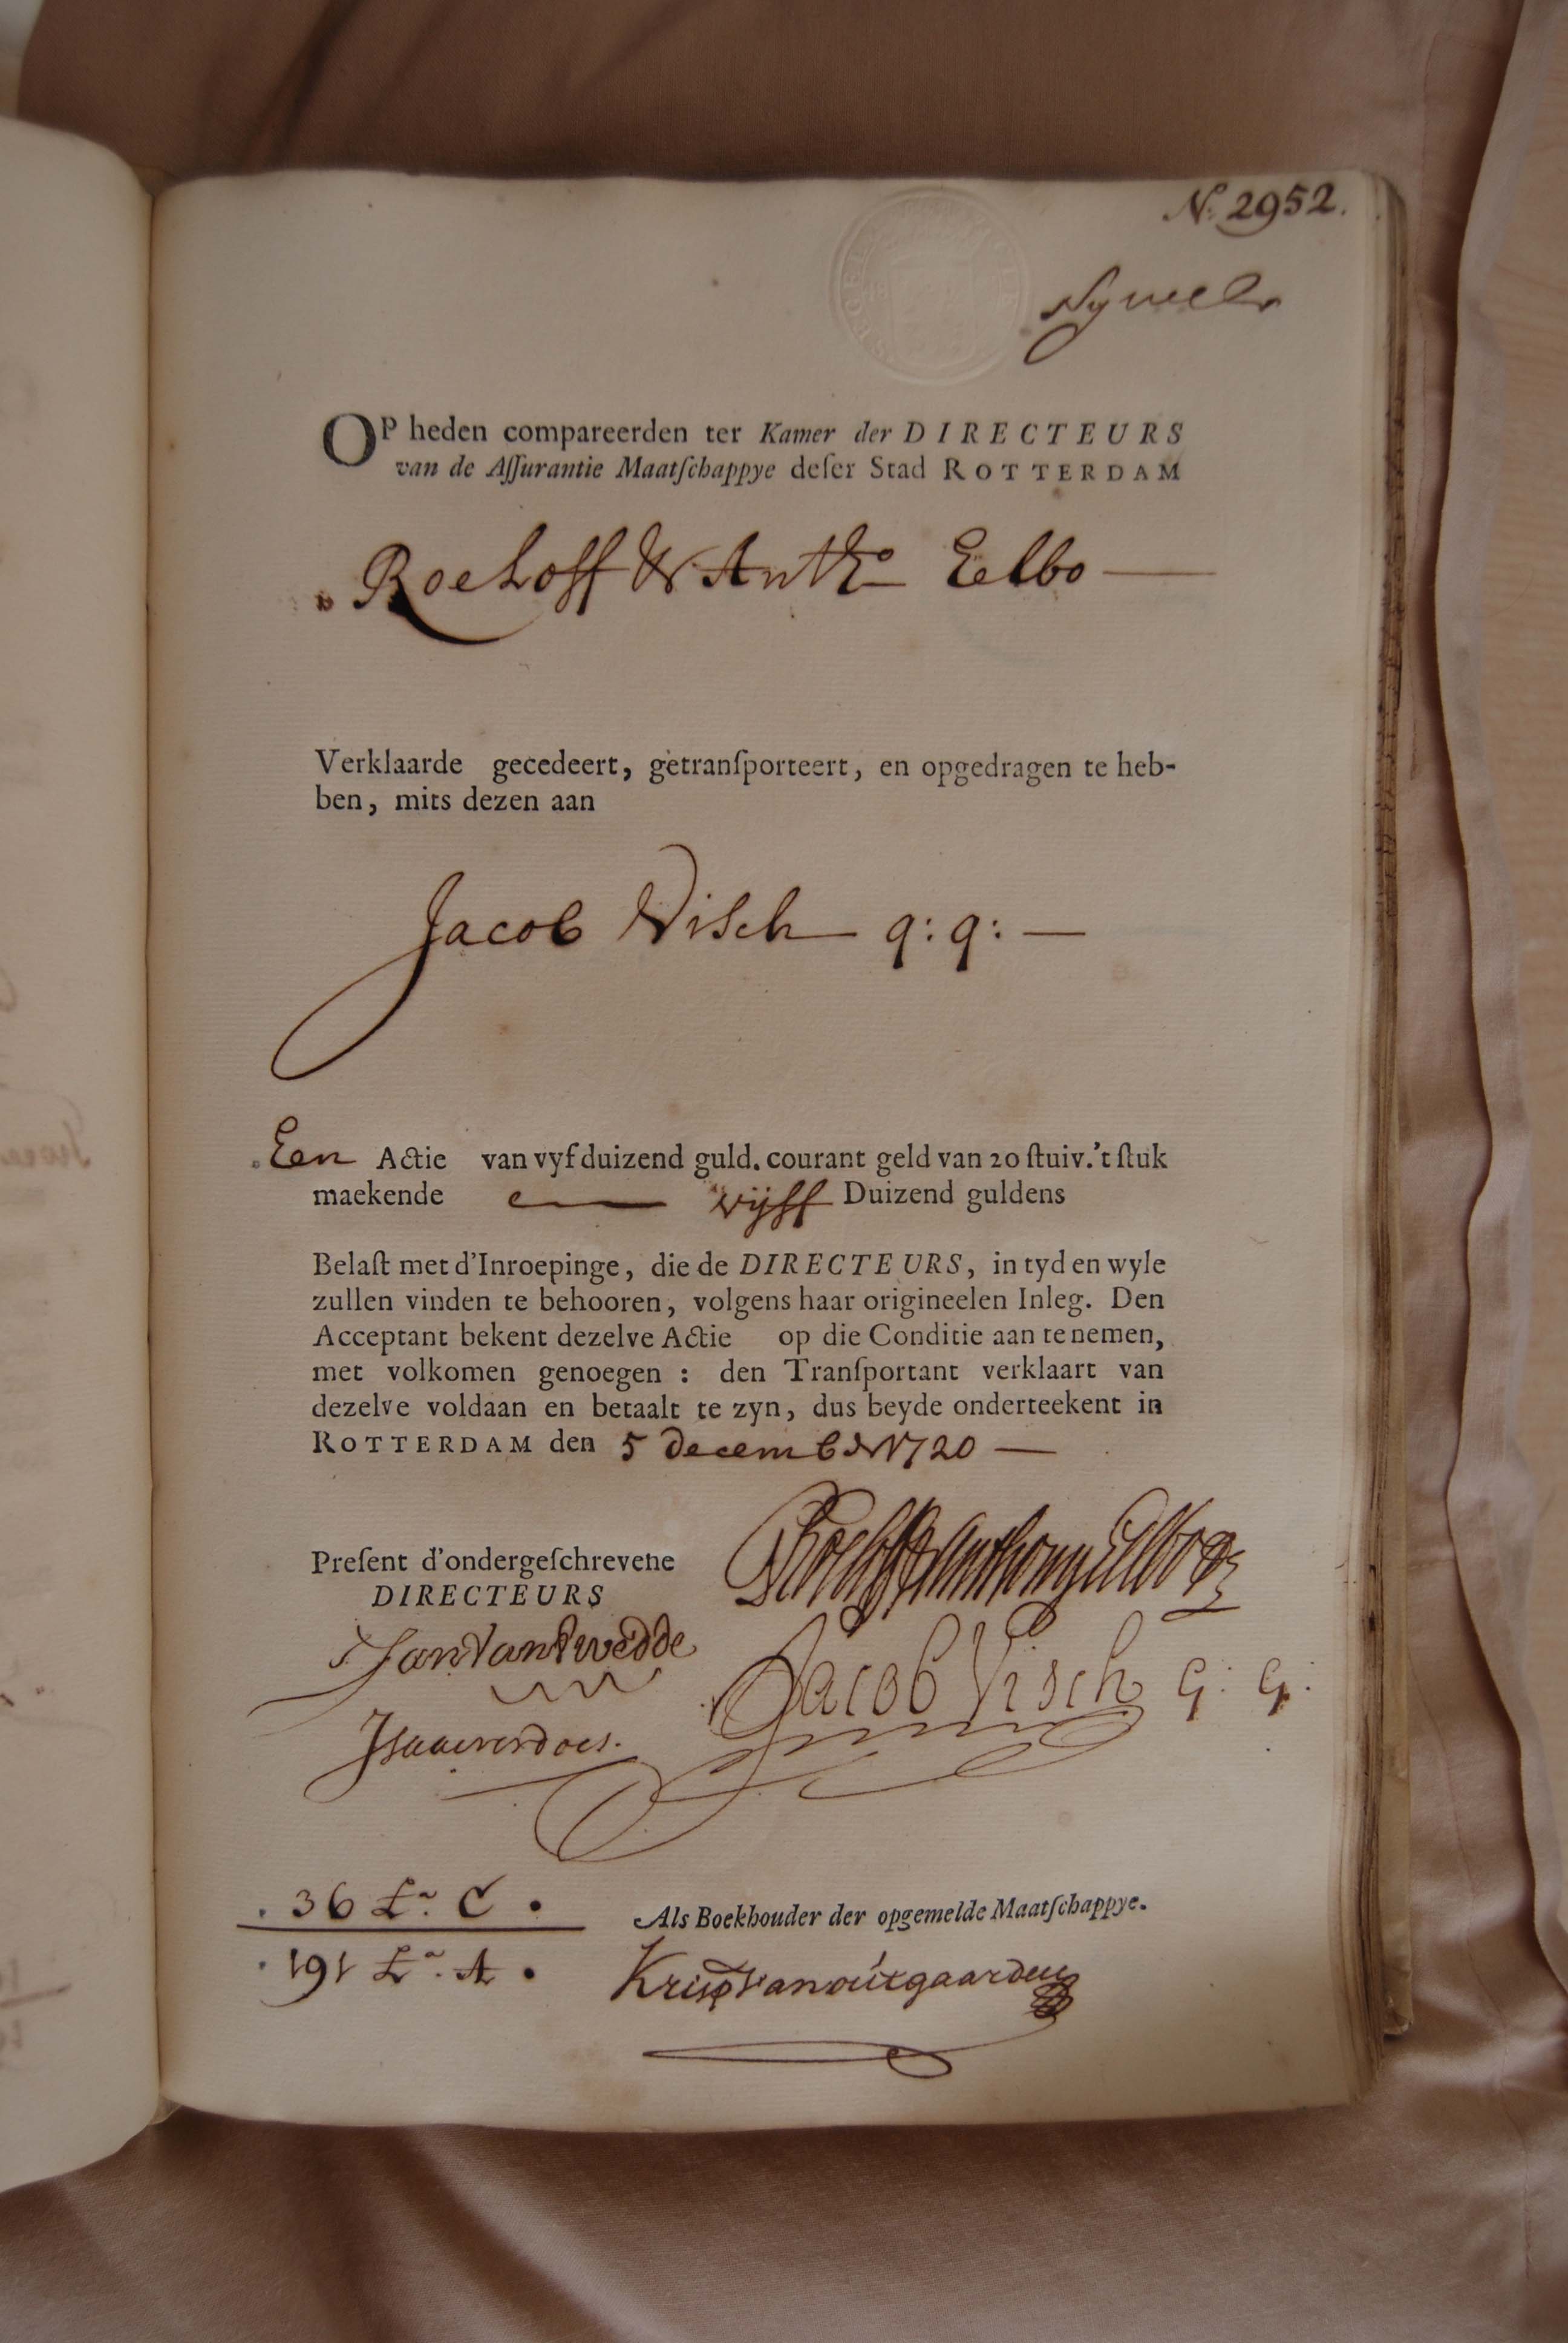 No. 2952.
OP heden compareerden ter Kamer der DIRECTEURS
van de Aſſurantie Maatſchappye deſer Stad ROTTERDAM
Roeloff & Antho Eelbo
Verklaarde gecedeert, getranſporteert, en opgedragen te heb-
ben, mits dezen aan
Jacob Visch q: q:
Een Actie van vyf duizend guld. courant geld van 20 ſtuiv. 't ſtuk
maekende vijff Duizend guldens
Belaſt met d'Inroepinge, die de DIRECTEURS, in tyd en wyle
zullen vinden te behooren, volgens haar origineelen Inleg. Den
Acceptant bekent dezelve Actie op die Conditie aan te nemen,
met volkomen genoegen : den Tranſportant verklaart van
dezelve voldaan en betaalt te zyn, dus beyde onderteekent in
ROTTERDAM den 5 december 1720
Preſent d'ondergeſchrevene
DIRECTEURS
Roeloff & Anthony Eelbo
Jacob Visch q: q:
36 Lr. C.
191 Lr. A.
Als Boekhouder der opgemelde Maatſchappye.